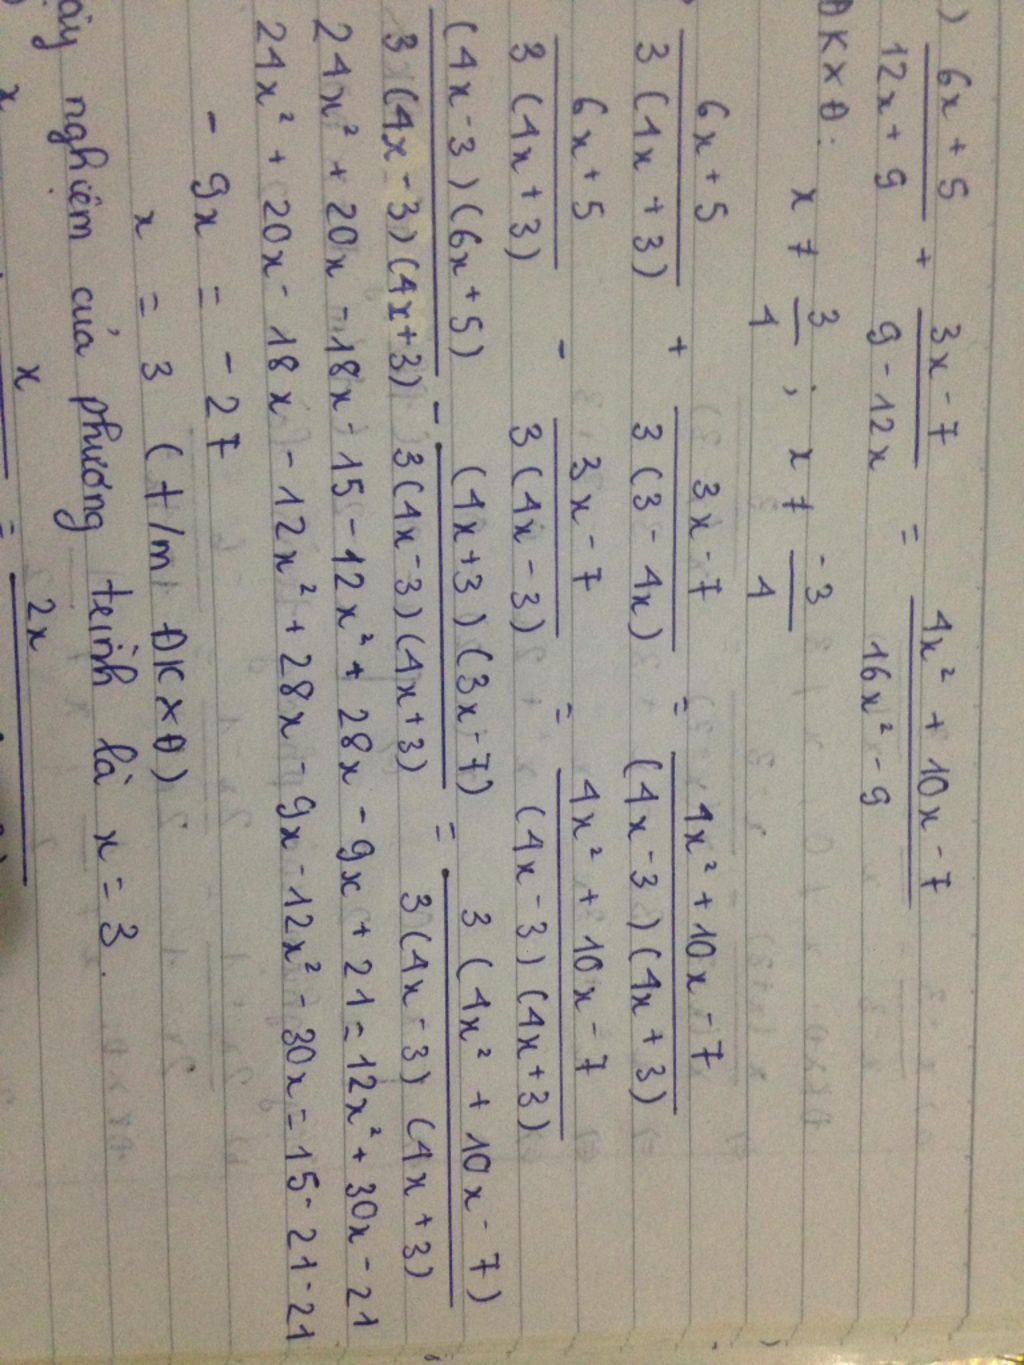 ) (6x + 5)/(12x + 9) + (3x - 7)/(9 - 12x) = (4x² + 10x - 7)/(16x² - 9)
ĐKXĐ: x ≠ 3/4 ; x ≠ -3/4
(6x + 5)/(3(4x + 3)) + (3x - 7)/(3(3 - 4x)) = (4x² + 10x - 7)/((4x - 3)(4x + 3))
(6x + 5)/(3(4x + 3)) - (3x - 7)/(3(4x - 3)) = (4x² + 10x - 7)/((4x - 3)(4x + 3))
((4x - 3)(6x + 5))/(3(4x - 3)(4x + 3)) - ((4x + 3)(3x - 7))/(3(4x - 3)(4x + 3)) = (3(4x² + 10x - 7))/(3(4x - 3)(4x + 3))
24x² + 20x - 18x - 15 - 12x² + 28x - 9x + 21 = 12x² + 30x - 21
24x² + 20x - 18x - 12x² + 28x - 9x - 12x² - 30x = 15 - 21 - 21
- 9x = - 27
x = 3 (t/m ĐKXĐ)
nghiệm của phương trình là x = 3.
x = 2x